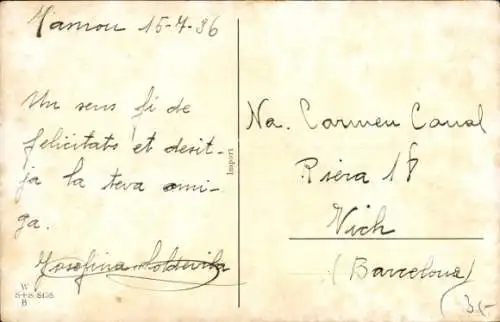 15-7-36
Un sens fi de
felicitats et desit-
ja la teva ami-
ga.
Josefina Soldevila
W
S+S 8158
B
Import
Na. Carmen Canal
Riera 18
Vich
(Barcelona)
35-